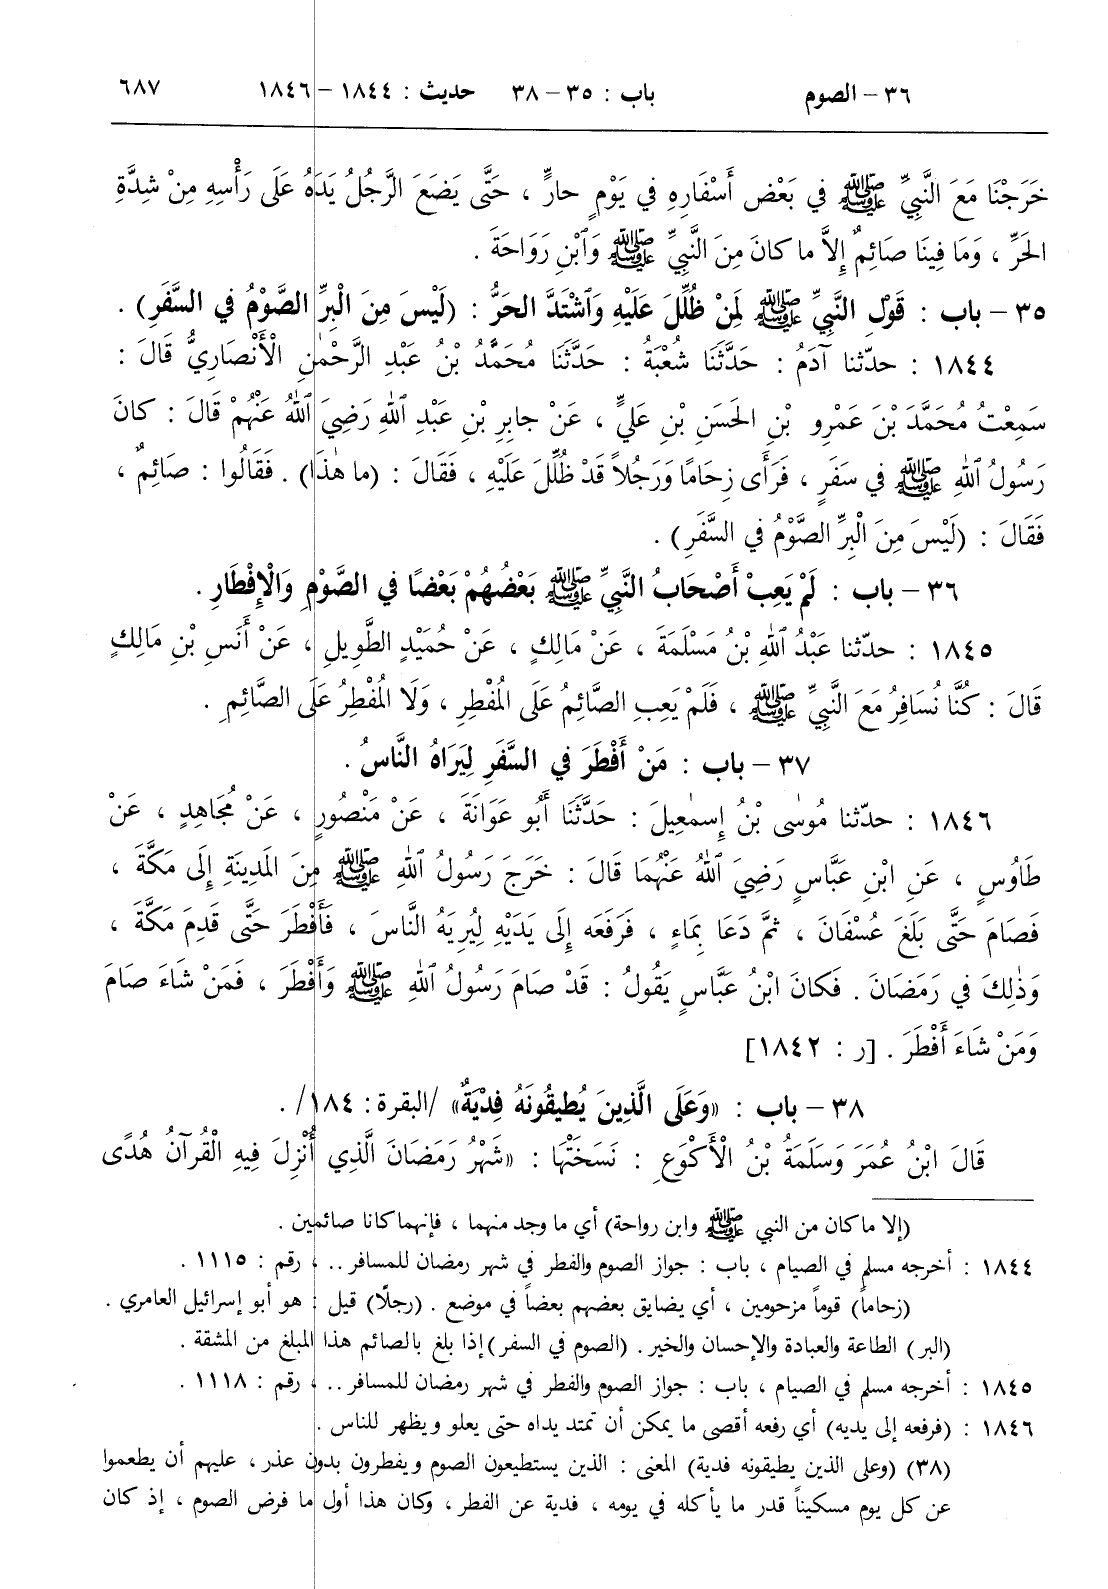 ٣٦ – الصوم باب : ٣٥ – ٣٨ حديث : ١٨٤٤ – ١٨٤٦ ٦٨٧
خَرَجْنَا مَعَ النَّبِيِّ ﷺ في بَعْضِ أَسْفَارِهِ في يَوْمٍ حارٍّ ، حَتَّى يَضَعَ الرَّجُلُ يَدَهُ عَلَى رَأْسِهِ مِنْ شِدَّةِ
الحَرِّ ، وَمَا فِينَا صَائِمٌ إِلَّا ما كانَ مِنَ النَّبِيِّ ﷺ وَٱبْنِ رَوَاحَةَ .
٣٥ – باب : قَوْلِ النَّبِيِّ ﷺ لِمَنْ ظُلِّلَ عَلَيْهِ وَٱشْتَدَّ الحَرُّ : (لَيْسَ مِنَ الْبِرِّ الصَّوْمُ في السَّفَرِ) .
١٨٤٤ : حدّثنا آدَمُ : حَدَّثَنَا شُعْبَةُ : حَدَّثَنَا مُحَمَّدُ بْنُ عَبْدِ الرَّحْمٰنِ الْأَنْصَارِيُّ قَالَ :
سَمِعْتُ مُحَمَّدَ بْنَ عَمْرِو بْنِ الحَسَنِ بْنِ عَلِيٍّ ، عَنْ جابِرِ بْنِ عَبْدِ ٱللهِ رَضِيَ ٱللهُ عَنْهُمْ قَالَ : كانَ
رَسُولُ ٱللهِ ﷺ في سَفَرٍ ، فَرَأَى زِحَامًا وَرَجُلاً قَدْ ظُلِّلَ عَلَيْهِ ، فَقَالَ : (ما هٰذَا) . فَقَالُوا : صَائِمٌ ،
فَقَالَ : (لَيْسَ مِنَ الْبِرِّ الصَّوْمُ في السَّفَرِ) .
٣٦ – باب : لَمْ يَعِبْ أَصْحَابُ النَّبِيِّ ﷺ بَعْضُهُمْ بَعْضًا في الصَّوْمِ وَالْإِفْطَارِ .
١٨٤٥ : حدّثنا عَبْدُ ٱللهِ بْنُ مَسْلَمَةَ ، عَنْ مَالِكٍ ، عَنْ حُمَيْدٍ الطَّوِيلِ ، عَنْ أَنَسِ بْنِ مَالِكٍ
قَالَ : كُنَّا نُسَافِرُ مَعَ النَّبِيِّ ﷺ ، فَلَمْ يَعِبِ الصَّائِمُ عَلَى المُفْطِرِ ، وَلَا المُفْطِرُ عَلَى الصَّائِمِ .
٣٧ – باب : مَنْ أَفْطَرَ في السَّفَرِ لِيَرَاهُ النَّاسُ .
١٨٤٦ : حدّثنا مُوسٰى بْنُ إِسمٰعِيلَ : حَدَّثَنَا أَبُو عَوَانَةَ ، عَنْ مَنْصُورٍ ، عَنْ مُجَاهِدٍ ، عَنْ
طَاوُسٍ ، عَنِ ابْنِ عَبَّاسٍ رَضِيَ ٱللهُ عَنْهُمَا قَالَ : خَرَجَ رَسُولُ ٱللهِ ﷺ مِنَ المَدِينَةِ إِلَى مَكَّةَ ،
فَصَامَ حَتَّى بَلَغَ عُسْفَانَ ، ثمَّ دَعَا بِمَاءٍ ، فَرَفَعَه إِلَى يَدَيْهِ لِيُرِيَهُ النَّاسَ ، فَأَفْطَرَ حَتَّى قَدِمَ مَكَّةَ ،
وَذٰلِكَ في رَمَضَانَ . فَكانَ ابْنُ عَبَّاسٍ يَقُولُ : قَدْ صَامَ رَسُولُ ٱللهِ ﷺ وَأَفْطَرَ ، فَمَنْ شَاءَ صَامَ
وَمَنْ شَاءَ أَفْطَرَ . [ر : ١٨٤٢]
٣٨ – باب : «وَعَلَى الَّذِينَ يُطِيقُونَهُ فِدْيَةٌ» /البقرة : ١٨٤/ .
قَالَ ابْنُ عُمَرَ وَسَلَمَةُ بْنُ الْأَكْوَعِ : نَسَخَتْهَا : «شَهْرُ رَمَضَانَ الَّذِي أُنْزِلَ فِيهِ الْقُرآنُ هُدًى
(إلا ما كان من النبي ﷺ وابن رواحة) أي ما وجد منهما ، فإنهما كانا صائمين .
١٨٤٤ : أخرجه مسلم في الصيام ، باب : جواز الصوم والفطر في شهر رمضان للمسافر .. ، رقم : ١١١٥ .
(زحاماً) قوماً مزحومين ، أي يضايق بعضهم بعضاً في موضع . (رجلًا) قيل : هو أبو إسرائيل العامري .
(البر) الطاعة والعبادة والإحسان والخير . (الصوم في السفر) إذا بلغ بالصائم هذا المبلغ من المشقة .
١٨٤٥ : أخرجه مسلم في الصيام ، باب : جواز الصوم والفطر في شهر رمضان للمسافر .. ، رقم : ١١١٨ .
١٨٤٦ : (فرفعه إلى يديه) أي رفعه أقصى ما يمكن أن تمتد يداه حتى يعلو ويظهر للناس .
(٣٨) (وعلى الذين يطيقونه فدية) المعنى : الذين يستطيعون الصوم ويفطرون بدون عذر ، عليهم أن يطعموا
عن كل يوم مسكيناً قدر ما يأكله في يومه ، فدية عن الفطر ، وكان هذا أول ما فرض الصوم ، إذ كان